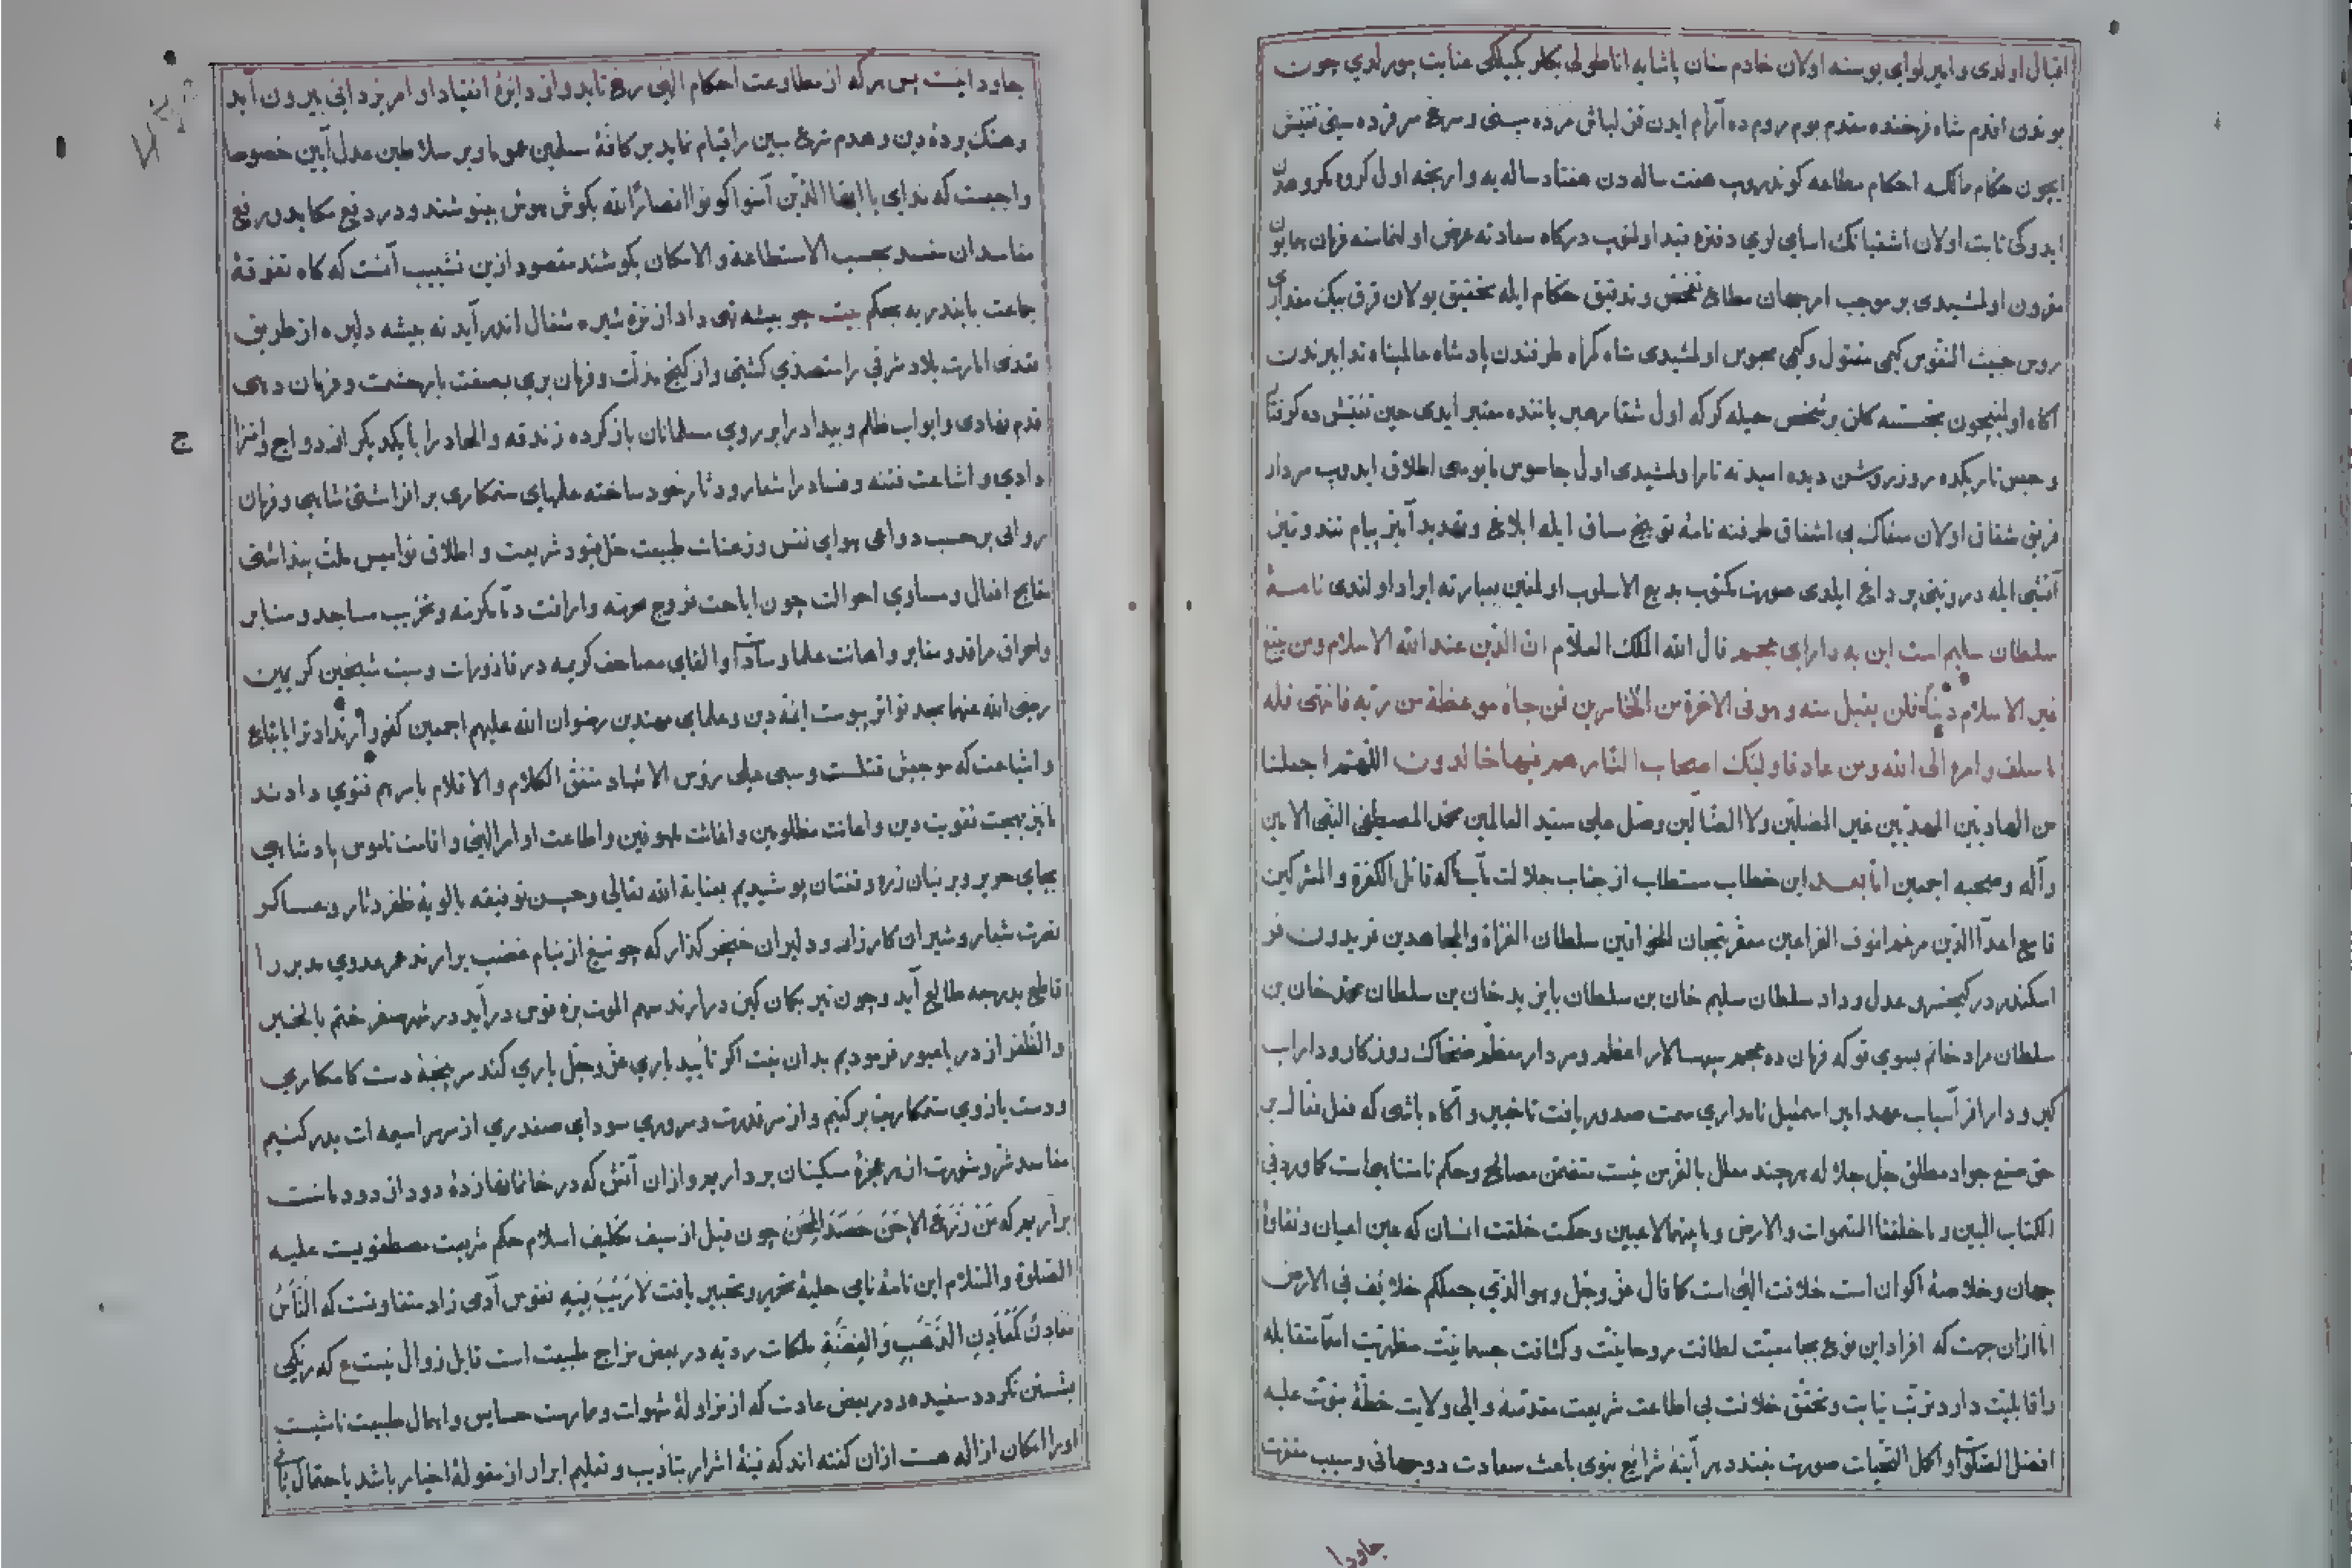 اقبال اولدی و امیر لوای بوسنه اولان خادم سنان پاشایه اناطولی بکلربکیلکی عنایت بیورلدی چون
بوندن اقدم شاه فرخنده مقدم بوم رومده آرام ایدن قزلباش مرده سینی و سرخ سرفرده سینی تفتیش
ایچون حکام ممالکه احکام مطاعه کوندروب هفت ساله دن هفتاد ساله یه وارنجه اول کروه مکروهدن
ایدوکی ثابت اولان اشقیانک اسامی لری دفتره قید اولنوب درکاه سعادته عرض اولنماسنه فرمان همایون
مقرون اولمشیدی بر موجب امر جهان مطاع تفحص و تدقیق حکام ایله تحقیق بولان قرق بیک مقداری
روس خبیث النفوس کیمی مقتول و کیمی محبوس اولمشیدی شاه کمراه طرفندن پادشاه عالمپناه تدابیرندن
آکاه اولمغیچون تجسسه کلن بر شخص حیله کر که اول شقا رهبر یاننده معتبر ایدی حین تفتیش ده کوفتار
و حبس تاریکده روز روشن دیده امیدنه تار اولمشیدی اول جاسوس مأیوسی اطلاق ایدوب سردار
فریق شقاق اولان سفاک بی اشفاق طرفنه نامه توبیخ ساق ایله ابلاغ و تهدید آمیز پیام تند و تیز
آتشی ایله درونینی پر داغ ایلدی صورت مکتوب بدیع الاسلوب اولمغین بعبارته ایراد اولندی نامه
سلطان سلیم است این به دارای عجم قال الله الملک العلام ان الدین عند الله الاسلام ومن یبتغ
غیر الاسلام دینا فلن یقبل منه وهو فی الاخرة من الخاسرین فمن جاءه موعظة من ربه فانتهی فله
ما سلف وامره الی الله ومن عاد فاولئک اصحاب النار هم فیها خالدون اللهم اجعلنا
من الهادین المهدیین غیر المضلین ولا الضالین وصل علی سید العالمین محمد المصطفی النبی الامین
وآله وصحبه اجمعین اما بعد این خطاب مستطاب از جناب جلالت مآب ما که قاتل الکفرة والمشرکین
قامع اعدآ الدین مرغم انوف الفراعین معفر تیجان الخواقین سلطان الغزاة والمجاهدین فریدون فر
اسکندر در کیخسرو عدل و داد سلطان سلیم خان بن سلطان بایزید خان بن سلطان محمد خان بن
سلطان مراد خانم بسوی تو که فرمان ده عجم سپهسالار اعظم و سردار معظم ضحاک روزکار و داراب
کیر و دار افراسیاب عهد امیر اسمعیل نامداری سمت صدور یافت تا خبیر و آکاه باشی که فعل فعال بر
حق صنع جواد مطلق جل جلاله هرچند معلل بالغرض نیست متضمن مصالح و حکم نامتناهی است کما ورد فی
الکتاب المبین وما خلقنا السموات والارض وما بینهما لاعبین و حکمت خلقت انسان که عین اعیان و نقاوه
جهان و خلاصه اکوان است خلافت الهی است کما قال عز وجل وهو الذی جعلکم خلائف فی الارض
اما ازان جهت که افراد این نوع بجامعیت لطافت روحانیت و کثافت جسمانیت مظهریت اسما متقابله
را قابلیت دارد ترتب نیابت و تحقق خلافت بی اطاعت شریعت مقدسه والی ولایت خطه نبوت علیه
افضل الصلوات و اکمل التحیات صورت نبندد هر آینه شرائع نبوی باعث سعادت دوجهانی و سبب مغفرت
جاودا
جاودانیست پس هر که از مطاوعت احکام الهی رخ تابد و از دائره انقیاد اوامر یزدانی بیرون آید
و هتک پرده دین و هدم شرع مبین را قیام نماید بر کافه مسلمین عموما و بر سلاطین عدل آیین خصوصا
واجبست که ندای یا ایها الذین آمنوا کونوا انصار الله بکوش هوش بینوشند و در دفع مکاید و رفع
مفاسد ان مفسد بحسب الاستطاعة والامکان بکوشند مقصود ازین تشبیب آنست که کاه تفرقه
جماعت بایندریه بحکم بیت چو بیشه تهی داد از نره شیر ٠ شغال اندر آید به بیشه دلیر ٠ از طریق
تعدی امارت بلاد شرقی را متصدی کشتی و از کنج مذلت و فرمان بری بصفت با رحشمت و فرمان دهی
قدم نهادی و ابواب ظلم و بیداد را بر روی مسلمانان باز کرده زندقه و الحاد را با یکدیکر ازدواج و امتزاج
دادی و اشاعت فتنه و فساد را شعار و دثار خود ساخته علمهای ستمکاری بر افراشتی شاهی و فرمان
روایی بر حسب دواعی هوای نفس و رعنات طبیعت حل قیود شریعت و اطلاق نوامیس ملت پنداشتی
قبایح افعال و مساوی احوالت چون اباحت فروج محرمه و اراقت دماء مکرمه و تخریب مساجد و منابر
و احراق مراقد و مقابر و اهانت علما و سادات و القای مصاحف کریمه در قاذورات و سبت شیخین کریمین
رضی الله عنهما بحد تواتر پیوست ایمه دین و علمای مهتدین رضوان الله علیهم اجمعین کفر و ارتداد ترا باتباع
و اشیاعت که موجبش قتلست و سبی علی رؤس الاشهاد متفق الکلام والاقلام باسرهم فتوی دادند
ما نیز بجهت تقویت دین و اعانت مظلومین و اغاثت ملهوفین و اطاعت اوامر الهی و اقامت ناموس پادشاهی
بجای حریر و پرنیان زره و خفتان پوشیدیم بعنایة الله تعالی وحسن توفیقه بالویه ظفر دثار و عساکر
نصرت شعار و شیران کارزار و دلیران خنجر کذار که چو تیغ از نیام غضب برارند عمر عدوی مدبر را
قاطع بدرجه طالع آید و چون تیر بکمان کین درارند سهم الموت بزه قوس درآید در شهر صفر ختم بالخیر
والظفر از دریا عبور فرمودیم بدان نیت اکر تأیید باری عز وجل یاری کند سرپنجه دست کامکاری
و دست بازوی ستمکاریت برکنیم و از سر قدرت و سروری سودای صفدری از سر اسیمه ات بدر کنیم
مفاسد شر و شورت از سر عجزه مسکینان برداریم و ازان آتش که در خانمانها زده دود از دودمانت
برآریم که من زرع الاحن حصد المحن چون قبل از سیف تکلیف اسلام حکم شریعت مصطفویست علیه
الصلوة والسلام این نامه نامی حلیه تحریر و تحبیر یافت لا ریب فیه نفوس آدمی زاد متفاوتست که الناس
معادن کمعادن الذهب والفضة ملکات ردیه در بعض مزاج طبیعت است قابل زوال نیست ع که زنکی
بشستن نکردد سفید و در بعض عادت که از مزاوله شهوات و ممارست خسایس و اهمال طبیعت ناشیست
اورا امکان ازاله هست ازان کفته اند که فیه اشرار بتأدیب و تعلیم ابرار از مقوله اخیار باشد با احتمال